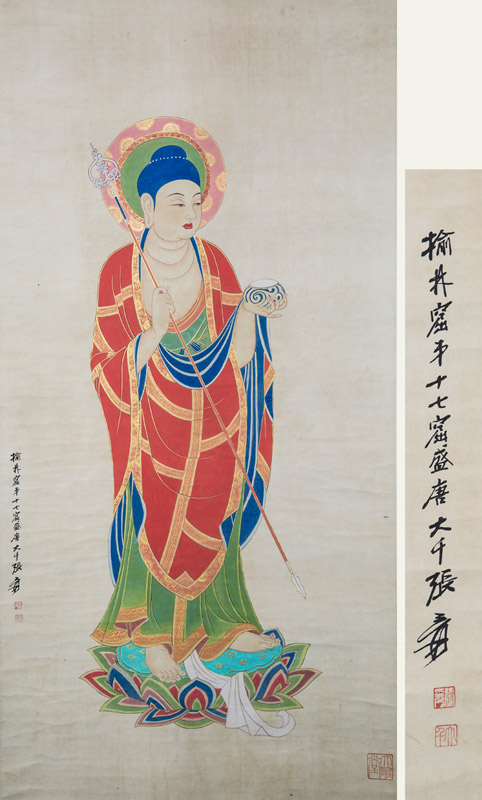 榆林窟弟十七窟盛唐大千張爰
榆林窟弟十七窟盛唐大千張爰